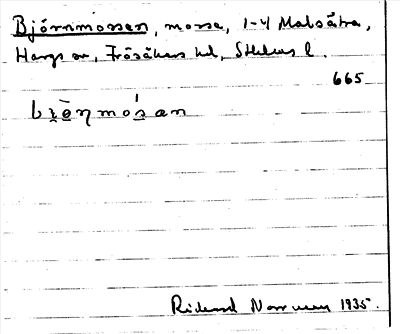 Björnmossen, mosse, 1-4 Malsätra,
Hargs sn, Frösåkers hd, Sthlms l.
665
Rickard Norrman 1935.